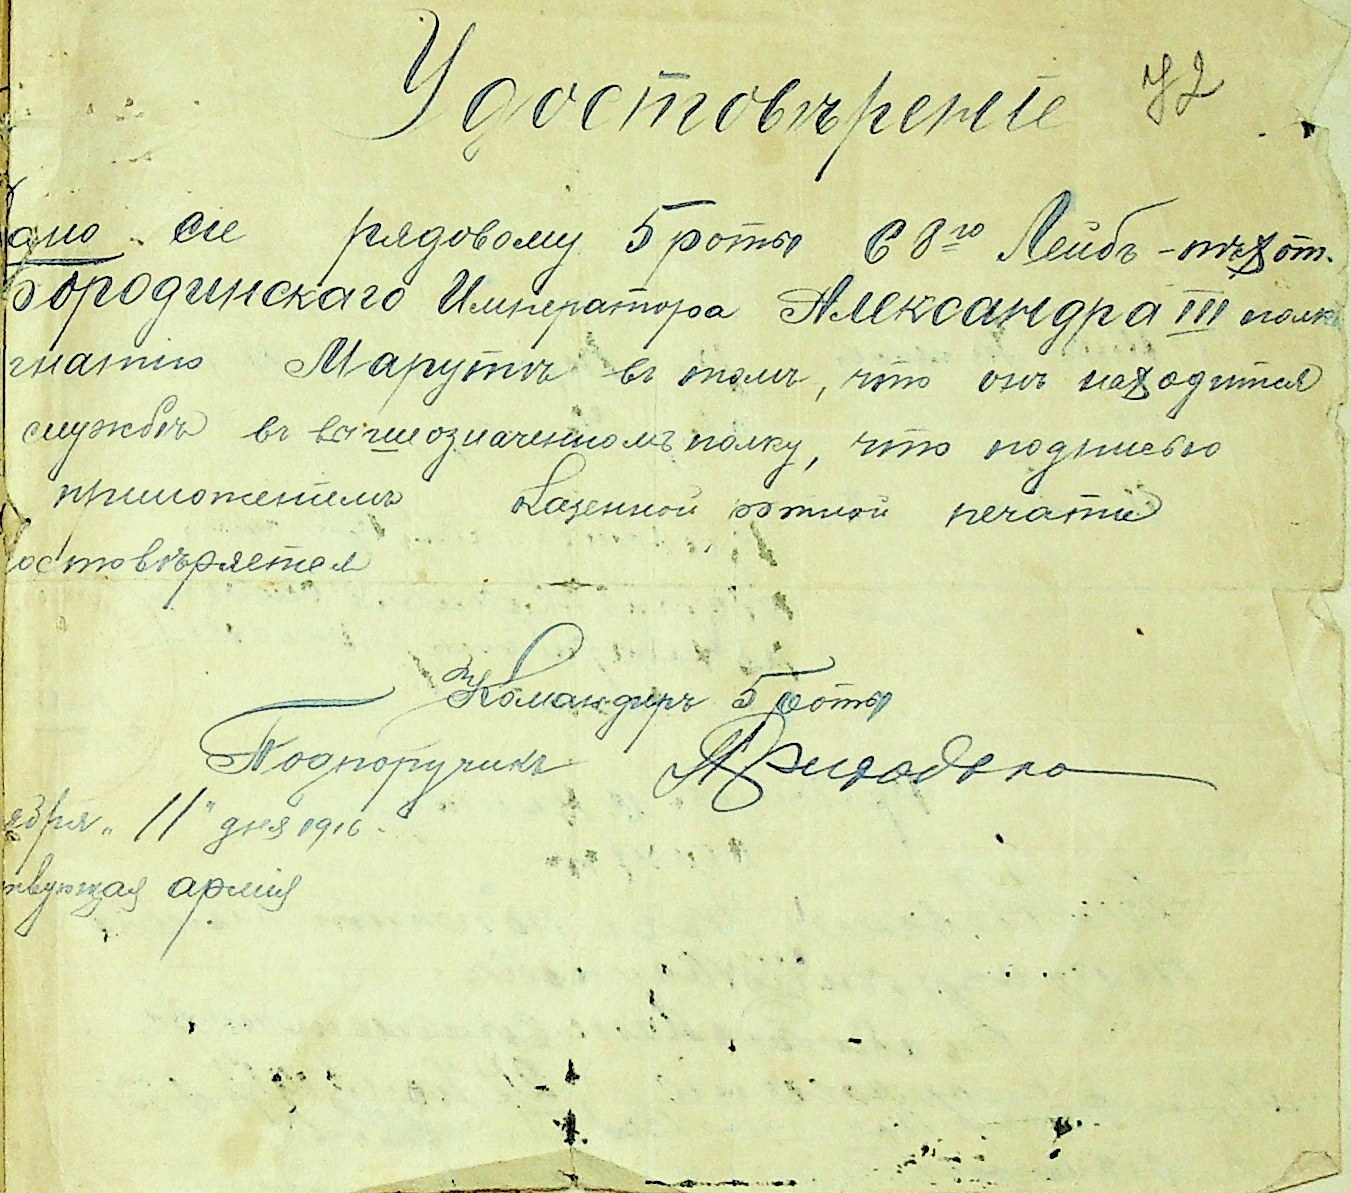 Удостовѣренiе 42
дано сiе рядовому 5 роты 68го Лейбъ-пѣхот.
Бородинскаго Императора Александра III полка
гнатiю Марутѣ въ томъ, что онъ находится
службѣ въ вышеозначенномъ полку, что подписью
приложенiемъ казенной ротной печати
достовѣряется
Командиръ 5 роты
Подпоручикъ
ября „11" дня 1916
твующая армiя